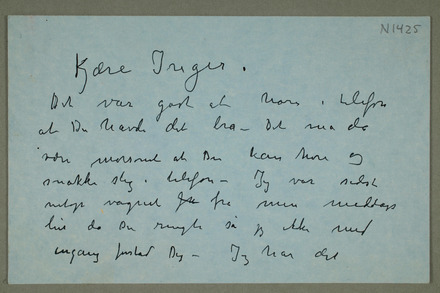 N1425
Kjære Inger.
Det var godt at høre i telefon
at Du havde det bra – Det må da
være morsomt at Du kan høre og
snakke i telefon – Jeg var
netop vågnet fra min middags
da Du ringte så jeg ikke med
engang forstod Dig – Jeg har det